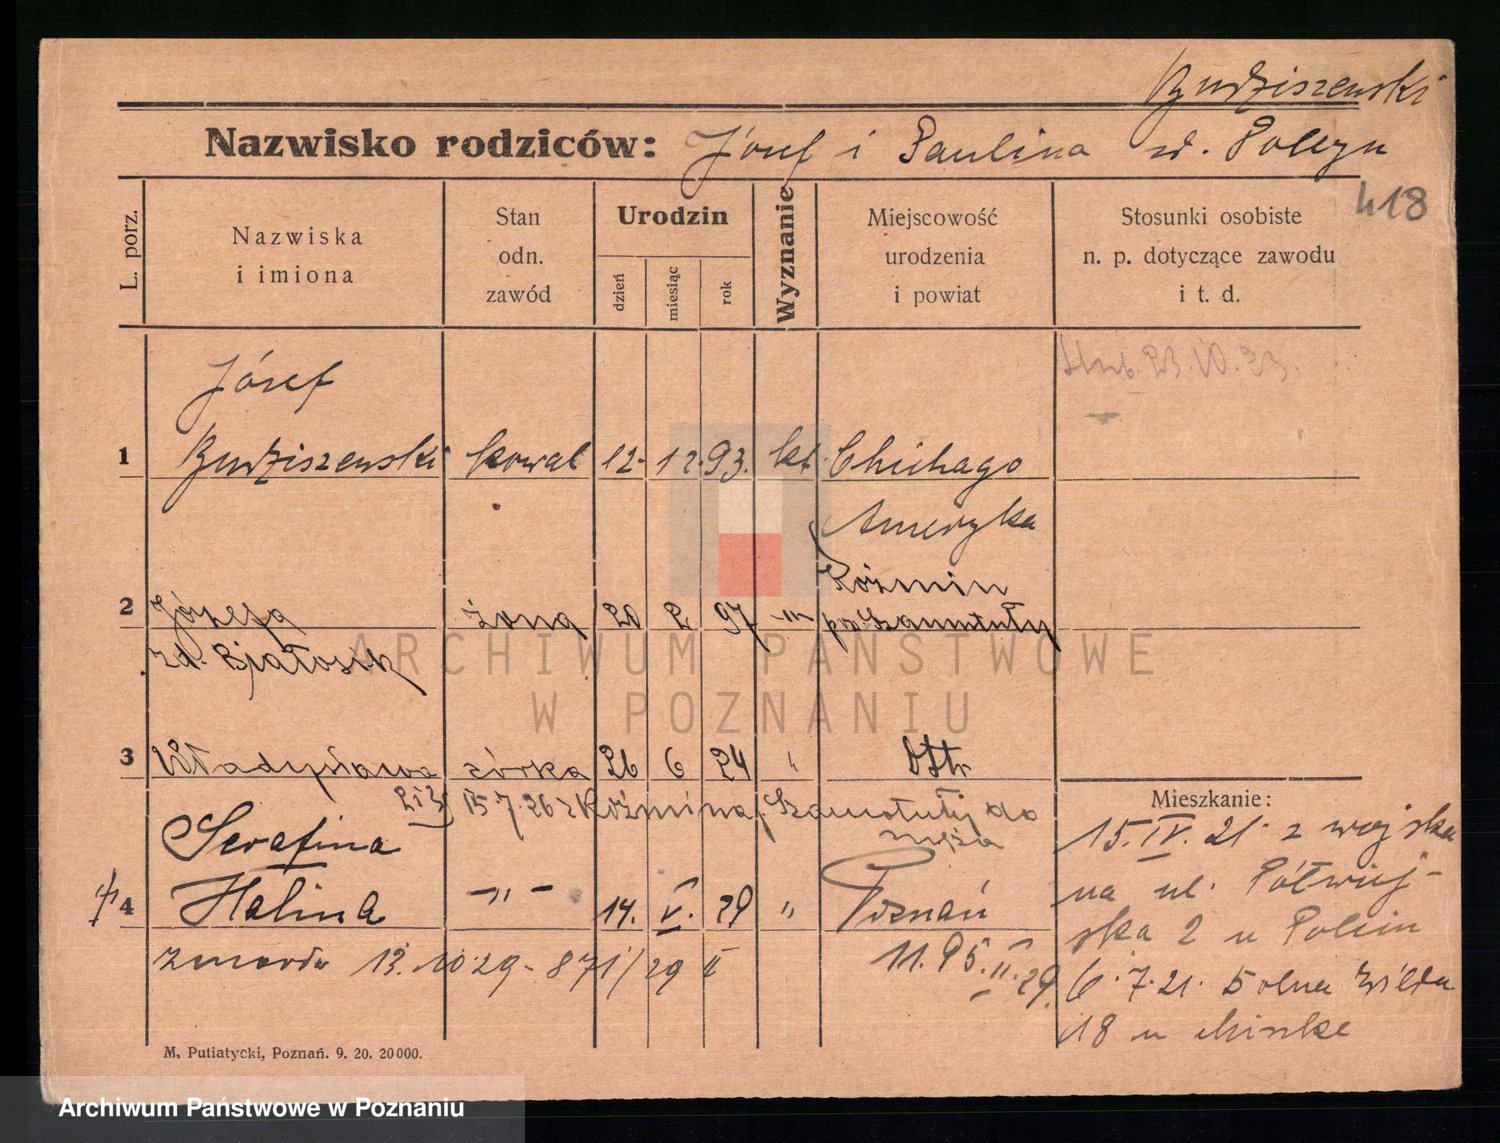 Budziszewski
Nazwisko rodziców: Józef i Paulina zd. Polczyn
418
L. porz.
Nazwiska
i imiona
Stan
odn.
zawód
Urodzin
dzień
miesiąc
rok
Wyznanie
Miejscowość
urodzenia
i powiat
Stosunki osobiste
n. p. dotyczące zawodu
i t. d.
Józef
1 Budziszewski kowal 12. 12. 93. kt. Chichago
Ameryka
Koźmin
2 Józefa żona 20 2 97 -"- po Szamotuły
zd. Białosik
3 Władysława córka 26 6 24 "
15.7.26 z Koźmina p. Szamotuły do
męża
Serafina
4 Halina -"- 14. V. 29 " Poznań
zmarła 13.10 29 - 871/29 II
11.95.II.29.
Mieszkanie:
15.IV.21 z wojska
na ul. Półwiej-
ska 2 u
6.7.21. Dolna Wilda
18 u
M. Putiatycki, Poznań. 9. 20. 20000.
ARCHIWUM PAŃSTWOWE
W POZNANIU
Archiwum Państwowe w Poznaniu